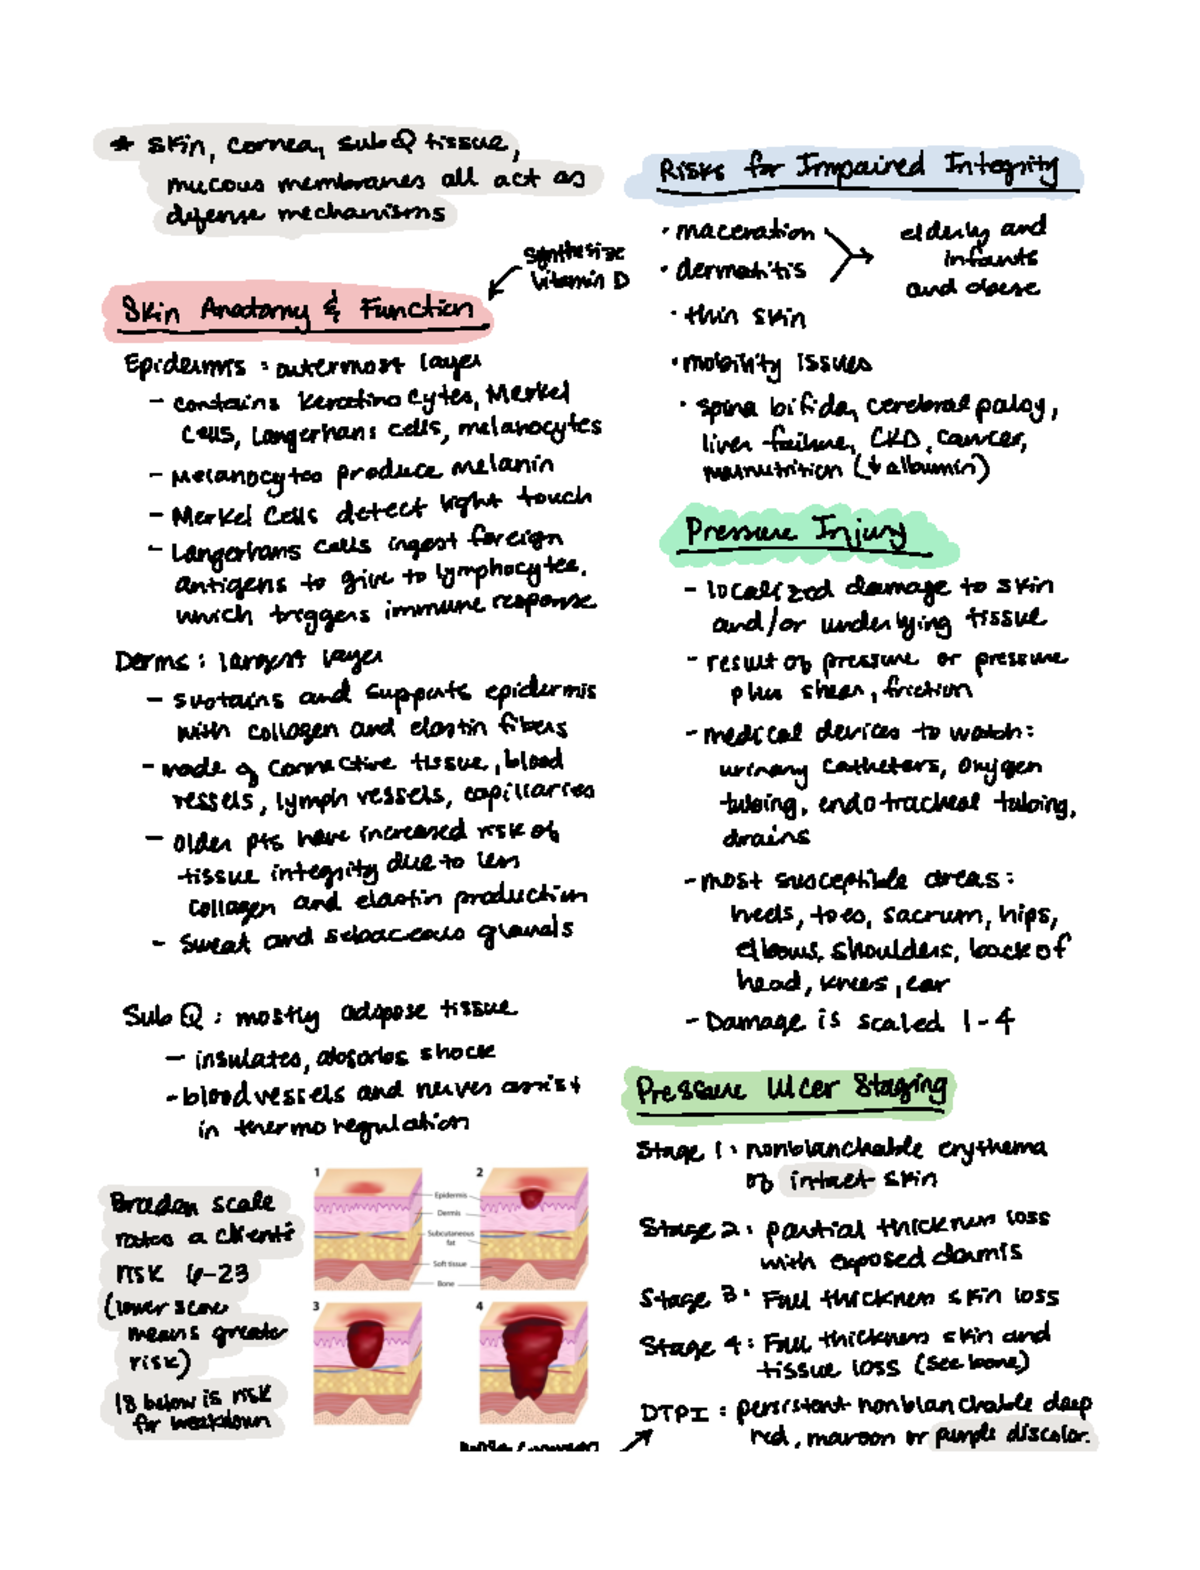 * Skin, cornea, subQ tissue,
mucous membranes all act as
defense mechanisms
synthesize
vitamin D
Skin Anatomy & Function
Epidermis : outermost layer
- contains keratinocytes, Merkel
cells, Langerhans cells, melanocytes
- Melanocytes produce melanin
- Merkel Cells detect light touch
- Langerhans cells ingest foreign
antigens to give to lymphocytes,
which triggers immune response
Dermis : largest layer
- sustains and supports epidermis
with collagen and elastin fibers
- made of connective tissue, blood
vessels, lymph vessels, capillaries
- older pts have increased risk of
tissue integrity due to less
collagen and elastin production
- Sweat and sebaceous glands
SubQ : mostly adipose tissue
- insulates, absorbs shock
- blood vessels and nerves assist
in thermoregulation
Braden scale
rates a client's
risk 6-23
(lower score
means greater
risk)
18 below is risk
for breakdown
1
2
Epidermis
Dermis
Subcutaneous
fat
Soft tissue
Bone
3
4
Risks for Impaired Integrity
• maceration
• dermatitis
elderly and
infants
and obese
• thin skin
• mobility issues
• spina bifida, cerebral palsy,
liver failure, CKD, cancer,
malnutrition (↓ albumin)
Pressure Injury
- localized damage to skin
and/or underlying tissue
- result of pressure or pressure
plus shear, friction
- medical devices to watch:
urinary catheters, oxygen
tubing, endotracheal tubing,
drains
- most susceptible areas:
heels, toes, sacrum, hips,
elbows, shoulders, back of
head, knees, ear
- Damage is scaled 1-4
Pressure Ulcer Staging
Stage 1: nonblanchable erythema
of intact skin
Stage 2: partial thickness loss
with exposed dermis
Stage 3: Full thickness skin loss
Stage 4: Full thickness skin and
tissue loss (see bone)
DTPI : persistent nonblanchable deep
red, maroon or purple discolor.